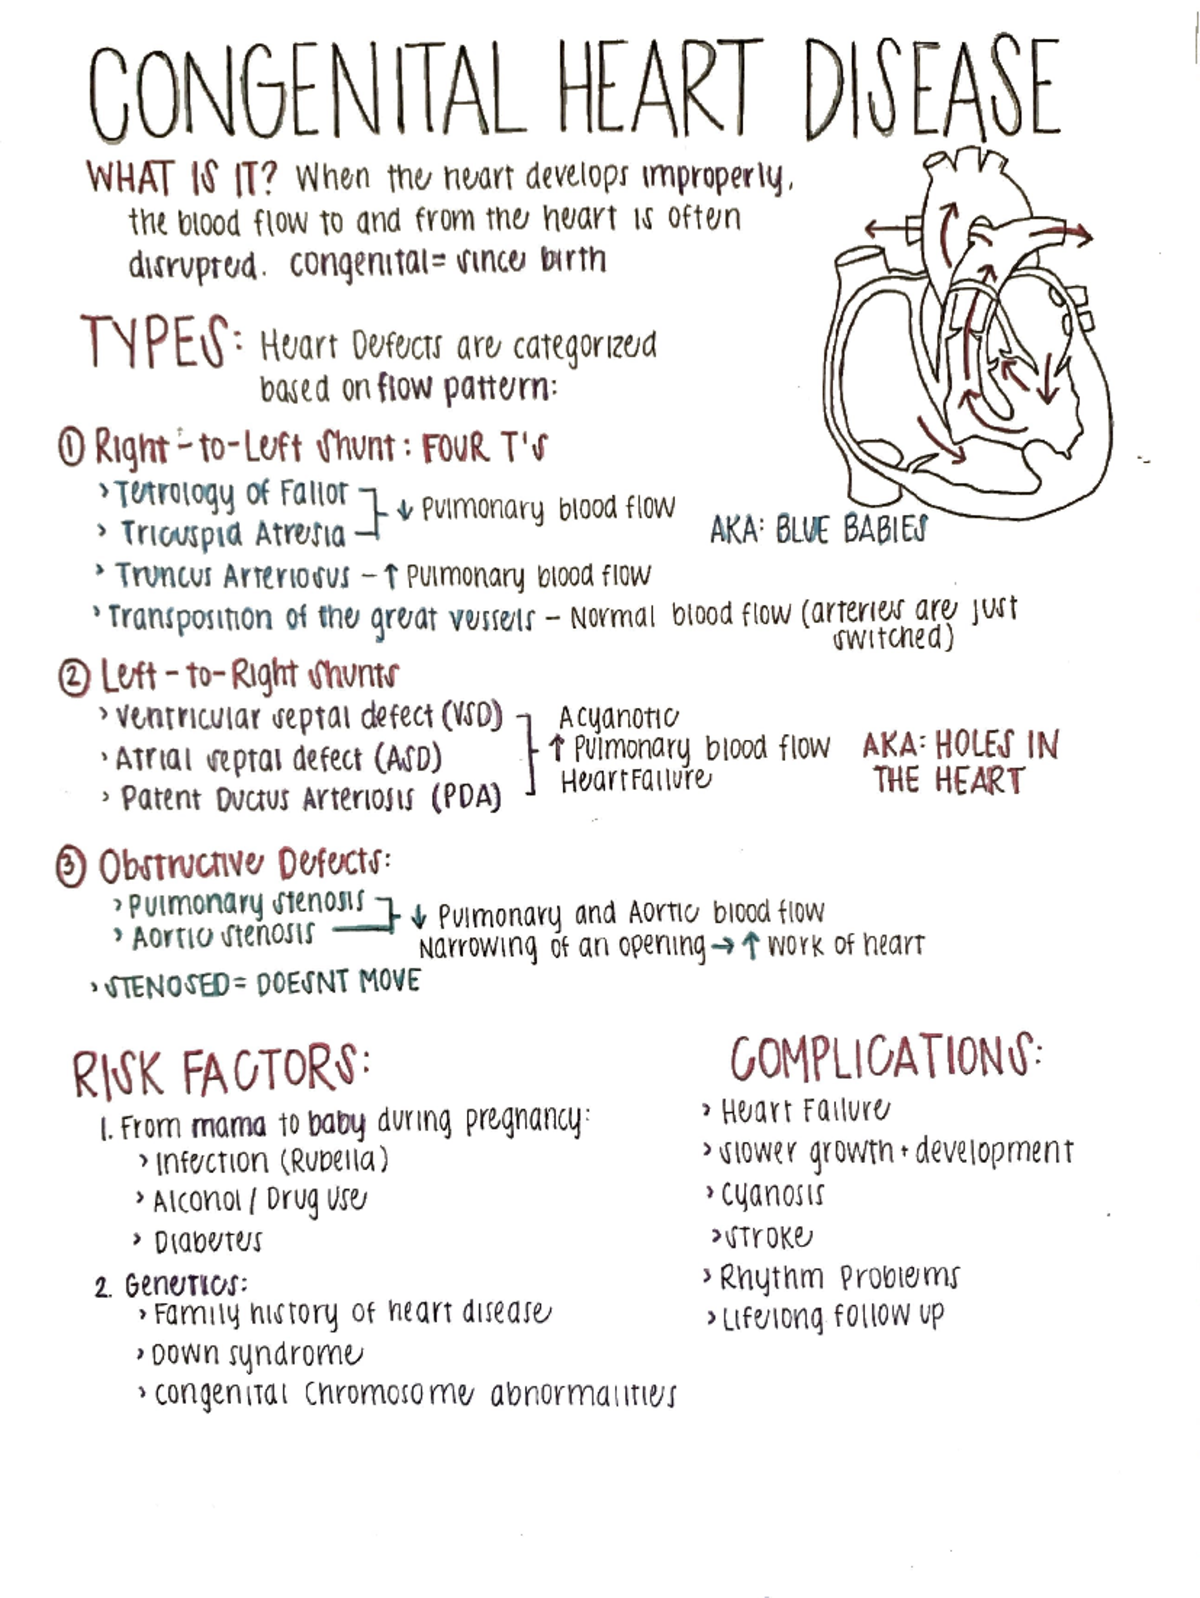 CONGENITAL HEART DISEASE
WHAT IS IT? When the heart develops improperly,
the blood flow to and from the heart is often
disrupted. congenital= since birth
TYPES: Heart Defects are categorized
based on flow pattern:
① Right-to-Left Shunt: FOUR T's
> Tetrology of Fallot
> Tricuspid Atresia
↓ Pulmonary blood flow
AKA: BLUE BABIES
> Truncus Arteriosus - ↑ Pulmonary blood flow
> Transposition of the great vessels - Normal blood flow (arteries are just
switched)
② Left-to-Right Shunts
> Ventricular septal defect (VSD)
> Atrial septal defect (ASD)
> Patent Ductus Arteriosis (PDA)
Acyanotic
↑ Pulmonary blood flow
Heart Failure
AKA: HOLES IN
THE HEART
③ Obstructive Defects:
> Pulmonary stenosis
> Aortic stenosis
↓ Pulmonary and Aortic blood flow
Narrowing of an opening → ↑ work of heart
> STENOSED = DOESNT MOVE
RISK FACTORS:
1. From mama to baby during pregnancy:
> Infection (Rubella)
> Alcohol / Drug use
> Diabetes
2. Genetics:
> Family history of heart disease
> Down syndrome
> congenital chromosome abnormalities
COMPLICATIONS:
> Heart Failure
> slower growth + development
> cyanosis
> stroke
> Rhythm Problems
> Lifelong follow up